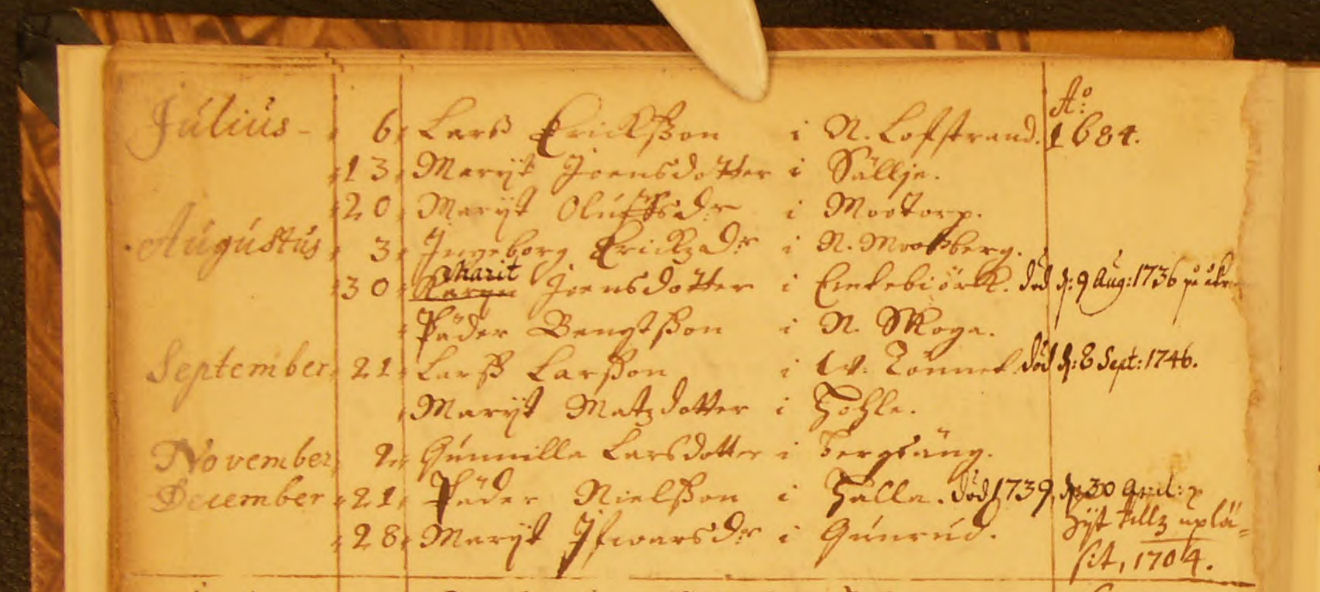 Aº:
Julius - 6. Lars Erickßon i N. Lofstrand. 1684.
13. Maryt Joensdotter i Sällje.
20. Maryt Olufsdr i Mootorp.
Augustus 3. Ingeborg Erickzdr i N. berg.
30. Marit Joensdotter i Enkebiörk. död d: 9 Aug: 1736 på
Päder Bengtßon i N. Skoga.
September 21. Larß Larßon i W. Tönnet död d: 8 Sept: 1746.
Maryt Matzdotter i
November 2. Gunnilla Larsdotter i Bergsäng.
December 21. Päder Nielßon i Hälla. död 1739 d. 30
28. Maryt Ifwarsdr i Gunrud. Hijt tillz uplä=
sit, 1704.